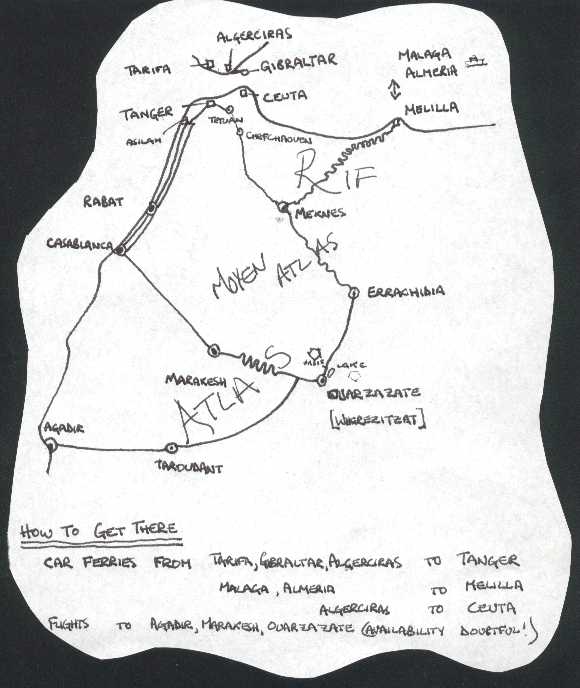 ALGERCIRAS
TARIFA
GIBRALTAR
MALAGA
ALMERIA
CEUTA
TANGER
MELILLA
ASILAH
TETUAN
CHEFCHAOUEN
RIF
RABAT
MEKNES
CASABLANCA
MOYEN ATLAS
ERRACHIDIA
ATLAS
LAKE
MARAKESH
OUARZAZATE
[WHEREZITZAT]
AGADIR
TAROUDANT
HOW TO GET THERE
CAR FERRIES FROM TARIFA, GIBRALTAR, ALGERCIRAS TO TANGER
MALAGA, ALMERIA TO MELILLA
ALGERCIRAS TO CEUTA
FLIGHTS TO AGADIR, MARAKESH, OUARZAZATE (AVAILABILITY DOUBTFUL!)